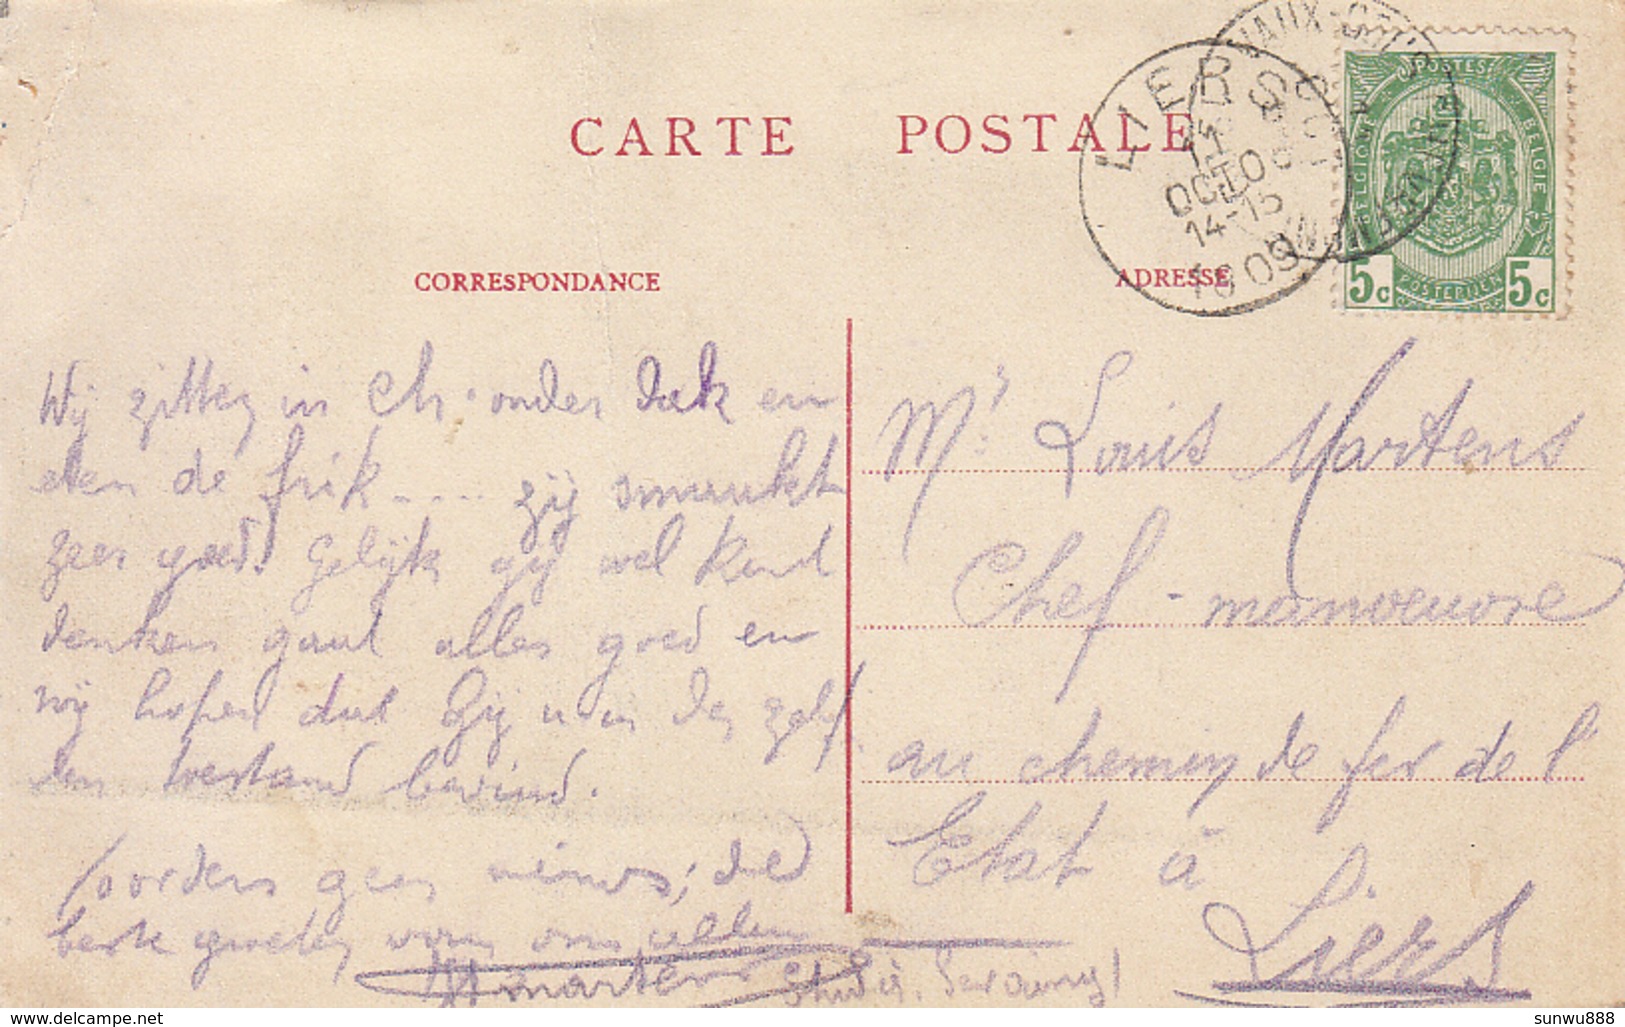 CARTE POSTALE
CORRESPONDANCE
ADRESSE
LIERS
OCTO
14-15
1909
POSTES
BELGIQUE
BELGIE
POSTERIJEN
5c 5c
Wij zitten in Ch. onder dak en
eten de frik .... zij smaakt
zeer goed. Gelijk gij wel kend
denken gaat alles goed en
wij hopen dat Gij u in den zelf
den toestand bevind.
voorders geen nieuws; de
beste groeten van ons allen
Martens
Seraing
Mr. Louis Martens
Chef-manoeuvre
au chemin de fer de l'
Etat à
Liers
sunwu888